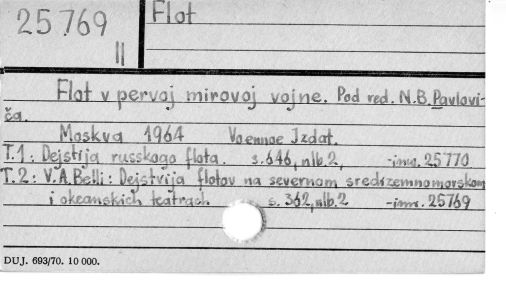 25769
II
Flot
Flot v pervoj mirovoj vojne. Pod red. N.B. Pavlovi-
ča.
Moskva 1964 Voennoe Izdat.
T.1: Dejstija russkogo flota. s.646, nlb.2, -inv. 25770
T.2: V.A.Belli: Dejstvija flotov na severnom sredizemnomorskom
i okeanskich teatrach s. 362, nlb.2 -inv. 25769
DUJ. 693/70. 10 000.